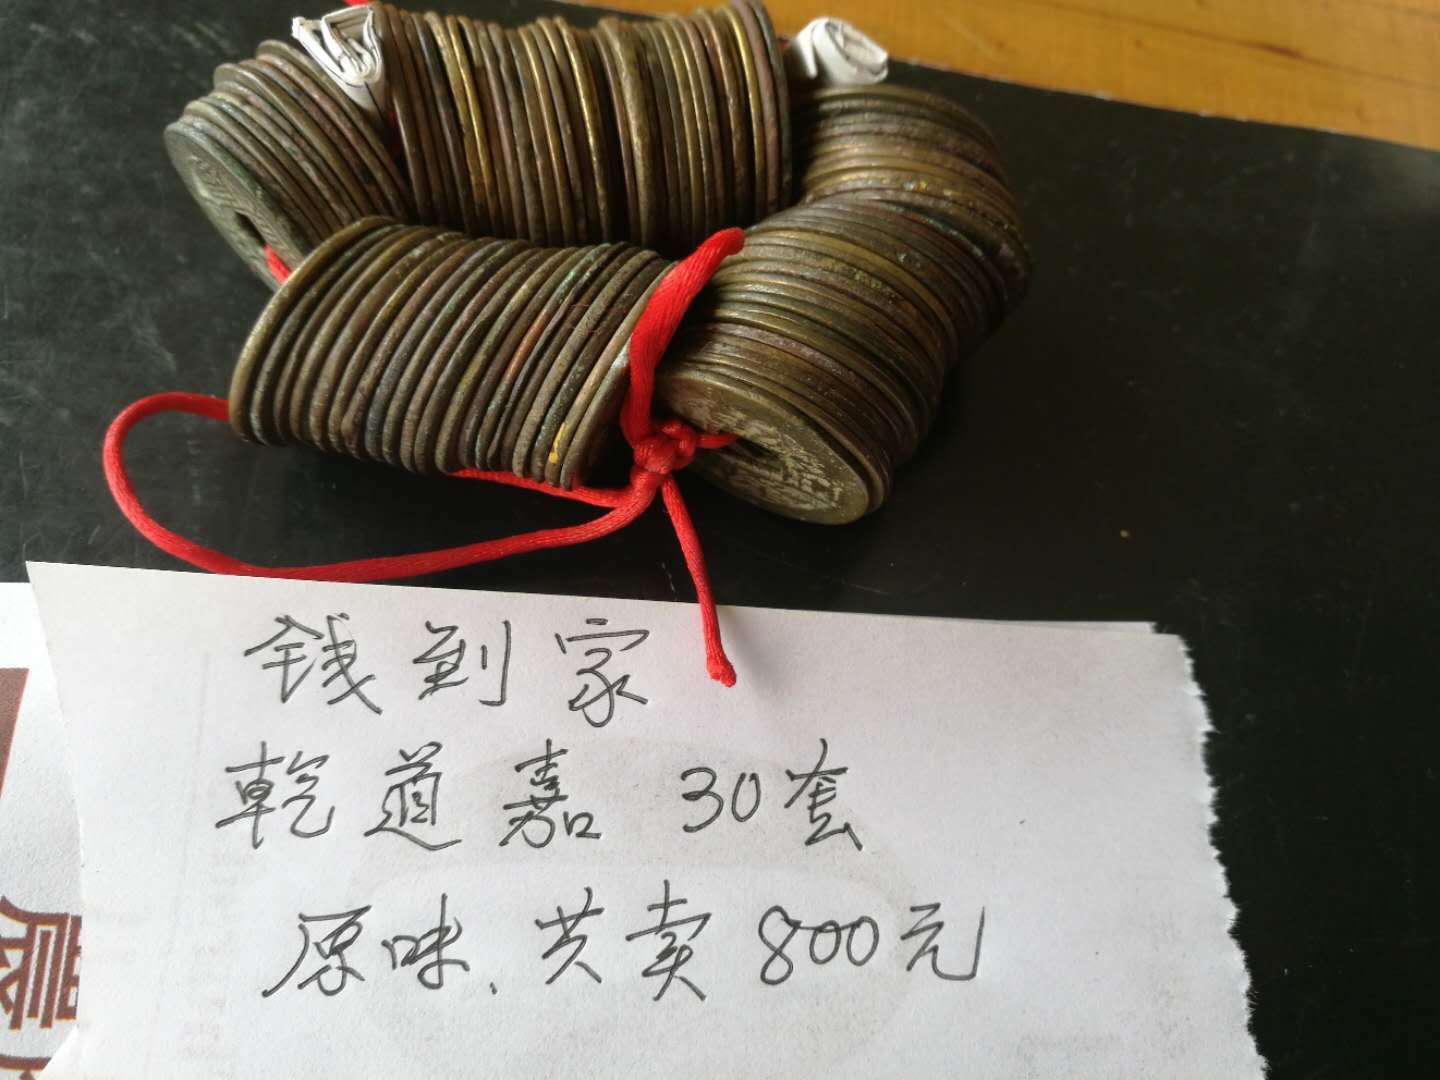 钱到家
乾道嘉 30套
原味、共卖800元